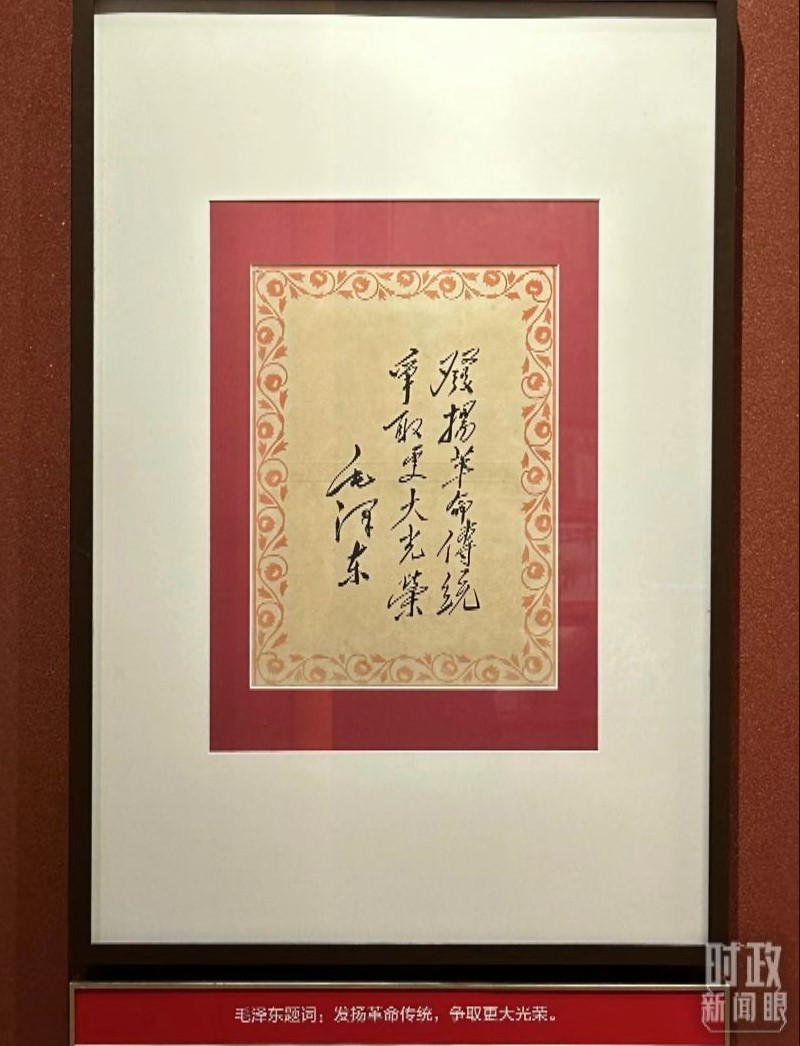 發揚革命傳統
爭取更大光榮
毛泽东
毛泽东题词：发扬革命传统，争取更大光荣。
时政
新闻眼